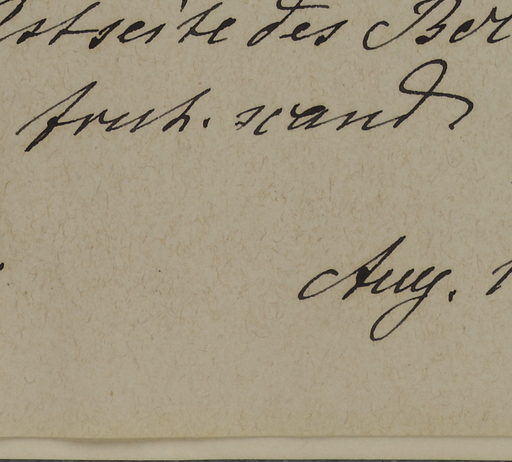 Ostseite des Ber
fruh. scand
Aug. 1